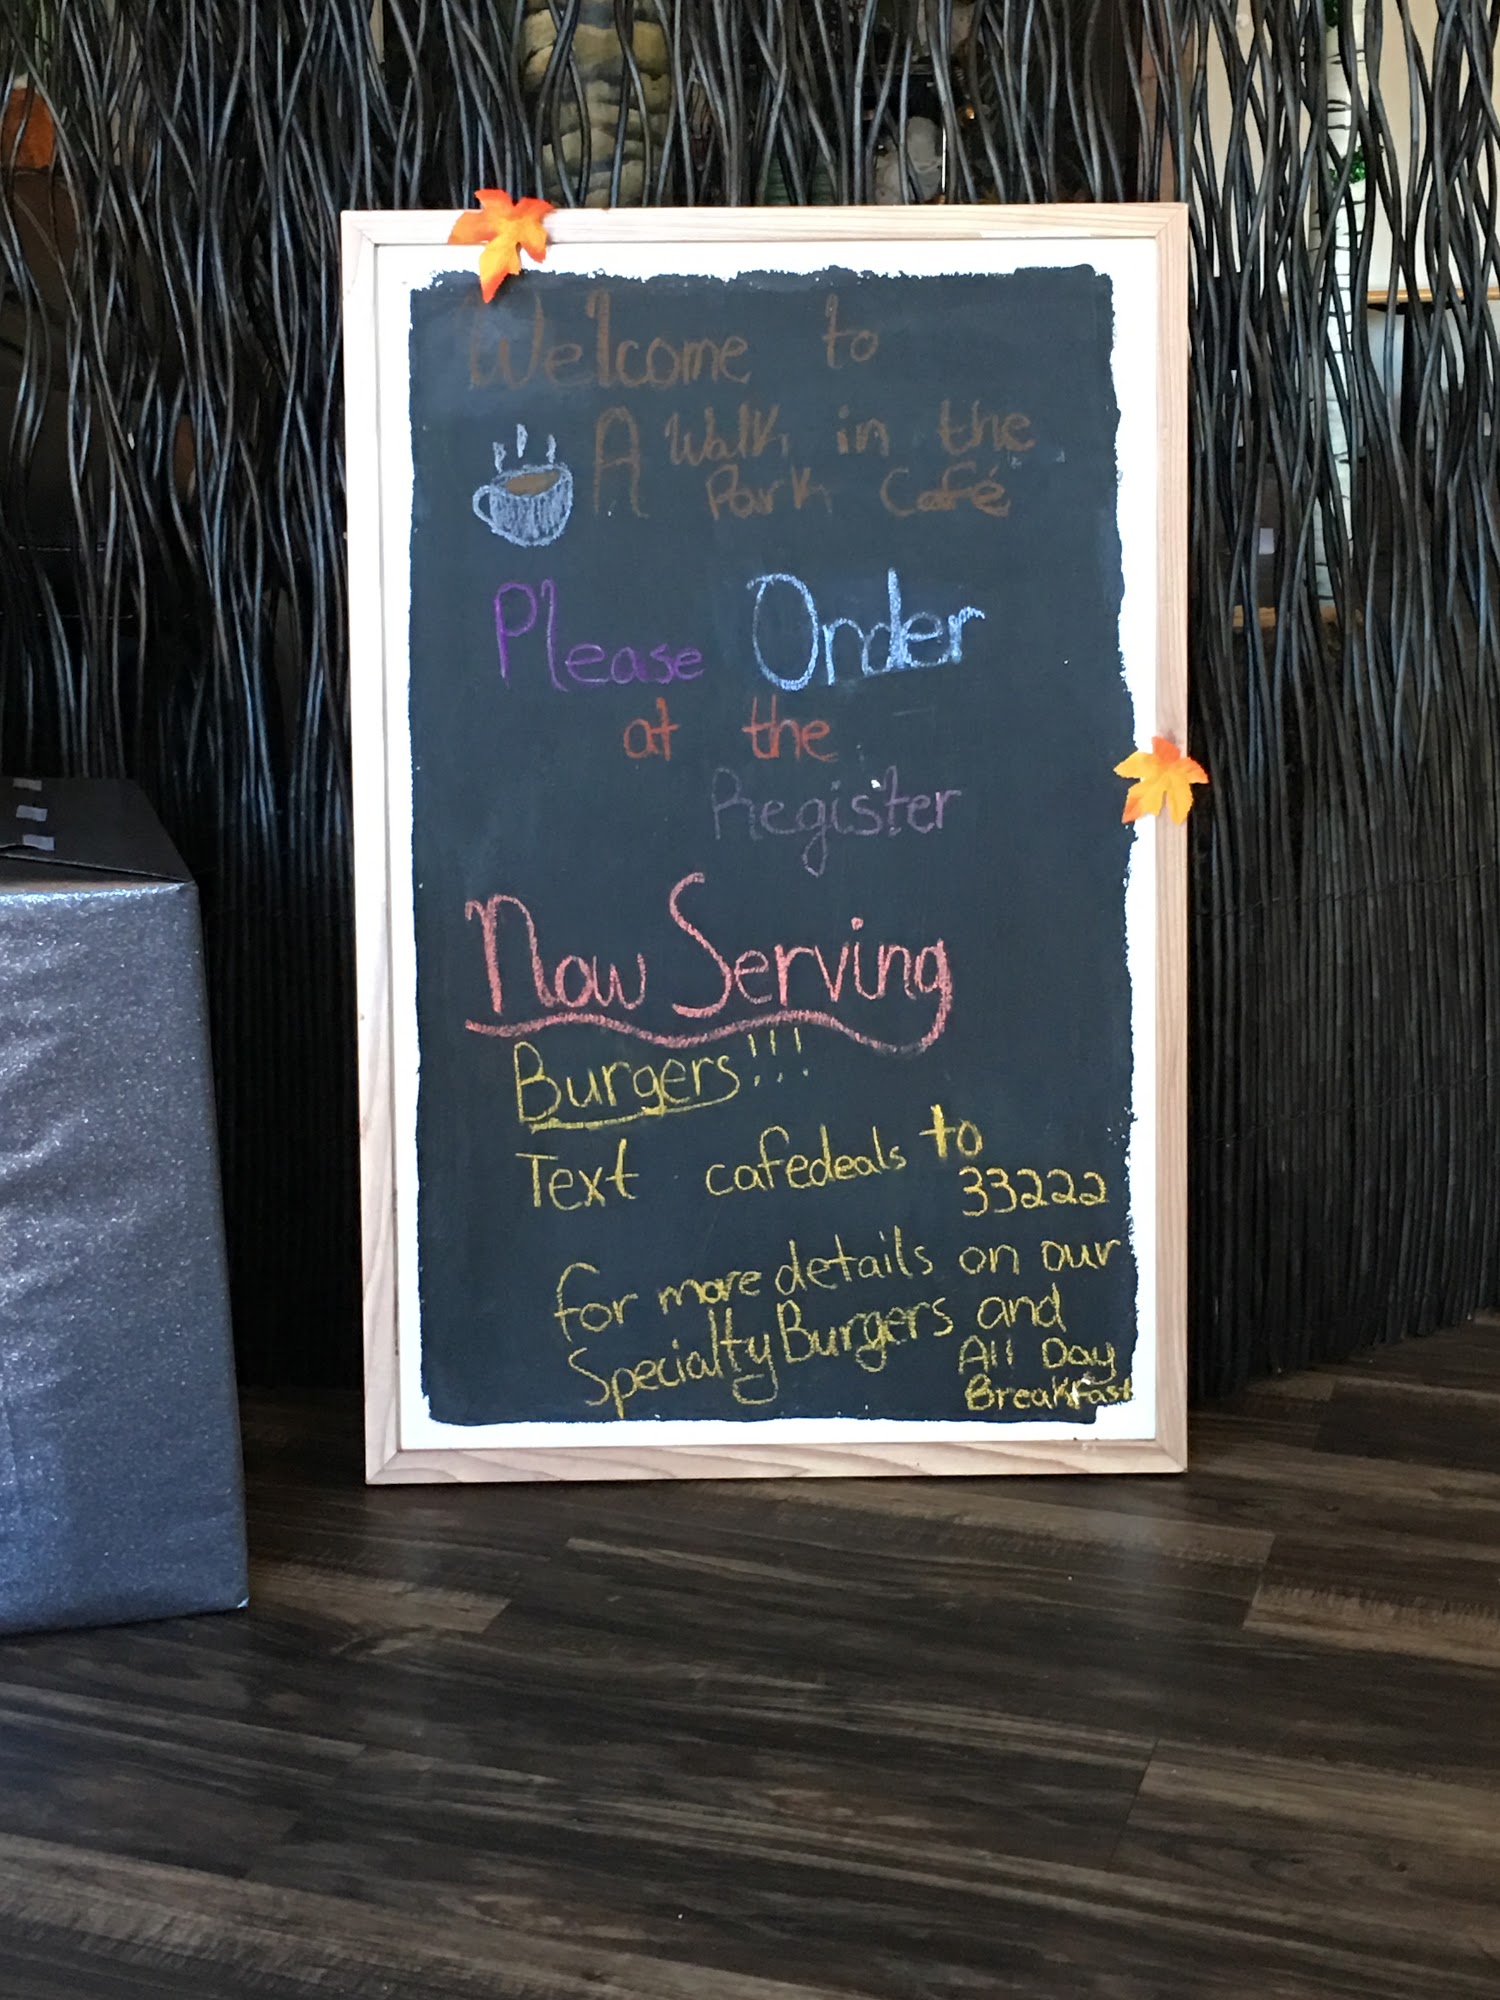 Welcome to
A Walk in the
Park Café
Please Order
at the
Register
Now Serving
Burgers!!!
Text cafedeals to
33222
for more details on our
Specialty Burgers and
All Day
Breakfast